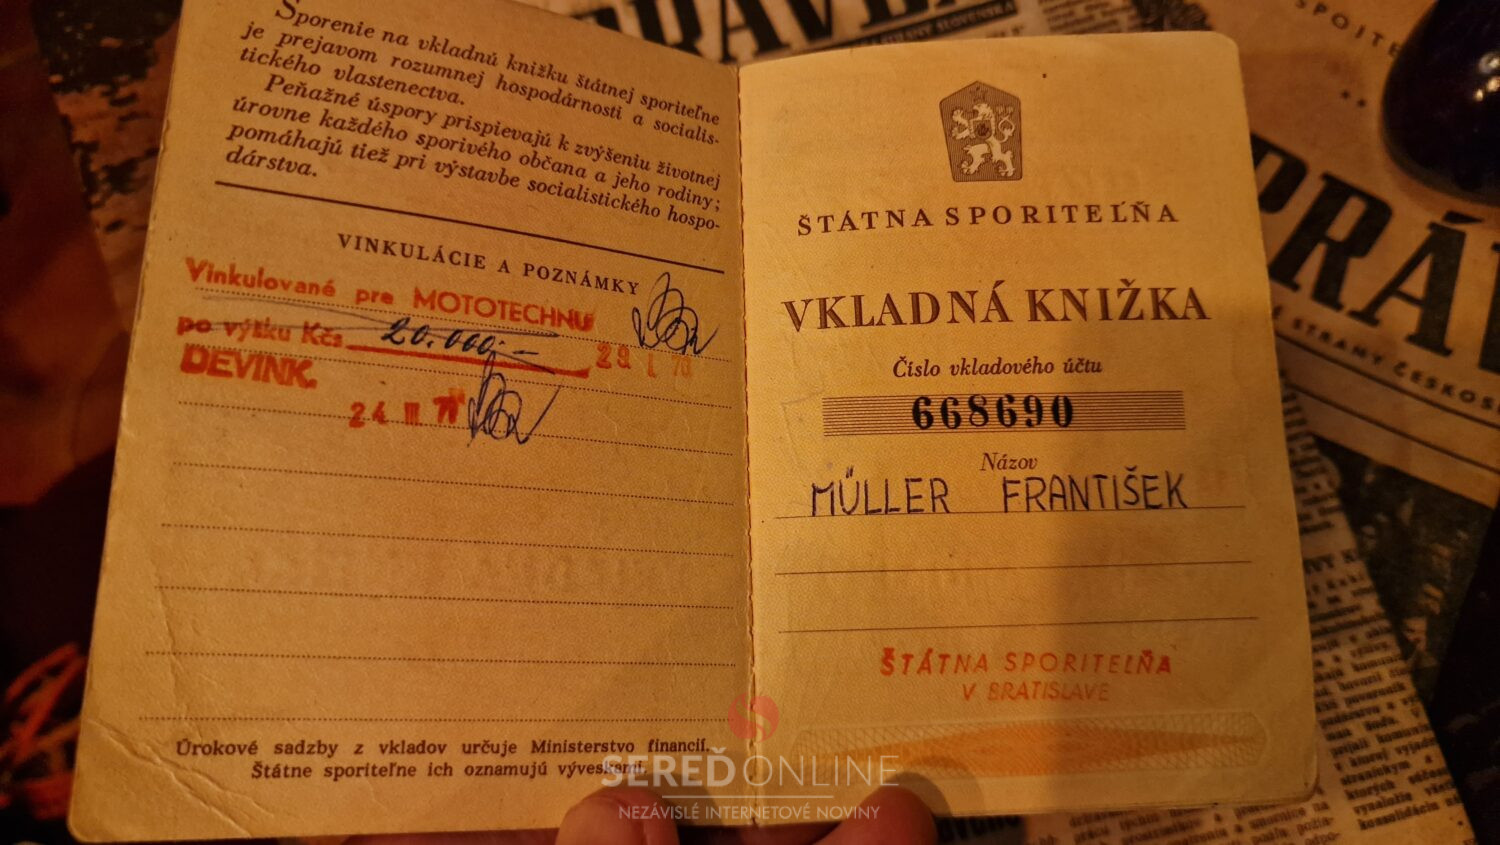 Sporenie na vkladnú knižku štátnej sporiteľne
je prejavom rozumnej hospodárnosti a socialis-
tického vlastenectva.
Peňažné úspory prispievajú k zvýšeniu životnej
úrovne každého sporivého občana a jeho rodiny;
pomáhajú tiež pri výstavbe socialistického hospo-
dárstva.
VINKULÁCIE A POZNÁMKY
Vinkulované pre MOTOTECHNU
po výšku Kčs 20.000,-
DEVINK.
24 III
Úrokové sadzby z vkladov určuje Ministerstvo financií.
Štátne sporiteľne ich oznamujú výveskami.
ŠTÁTNA SPORITEĽŇA
VKLADNÁ KNIŽKA
Číslo vkladového účtu
668690
Názov
MÜLLER FRANTIŠEK
ŠTÁTNA SPORITEĽŇA
V BRATISLAVE
SEREĎONLINE
NEZÁVISLÉ INTERNETOVÉ NOVINY